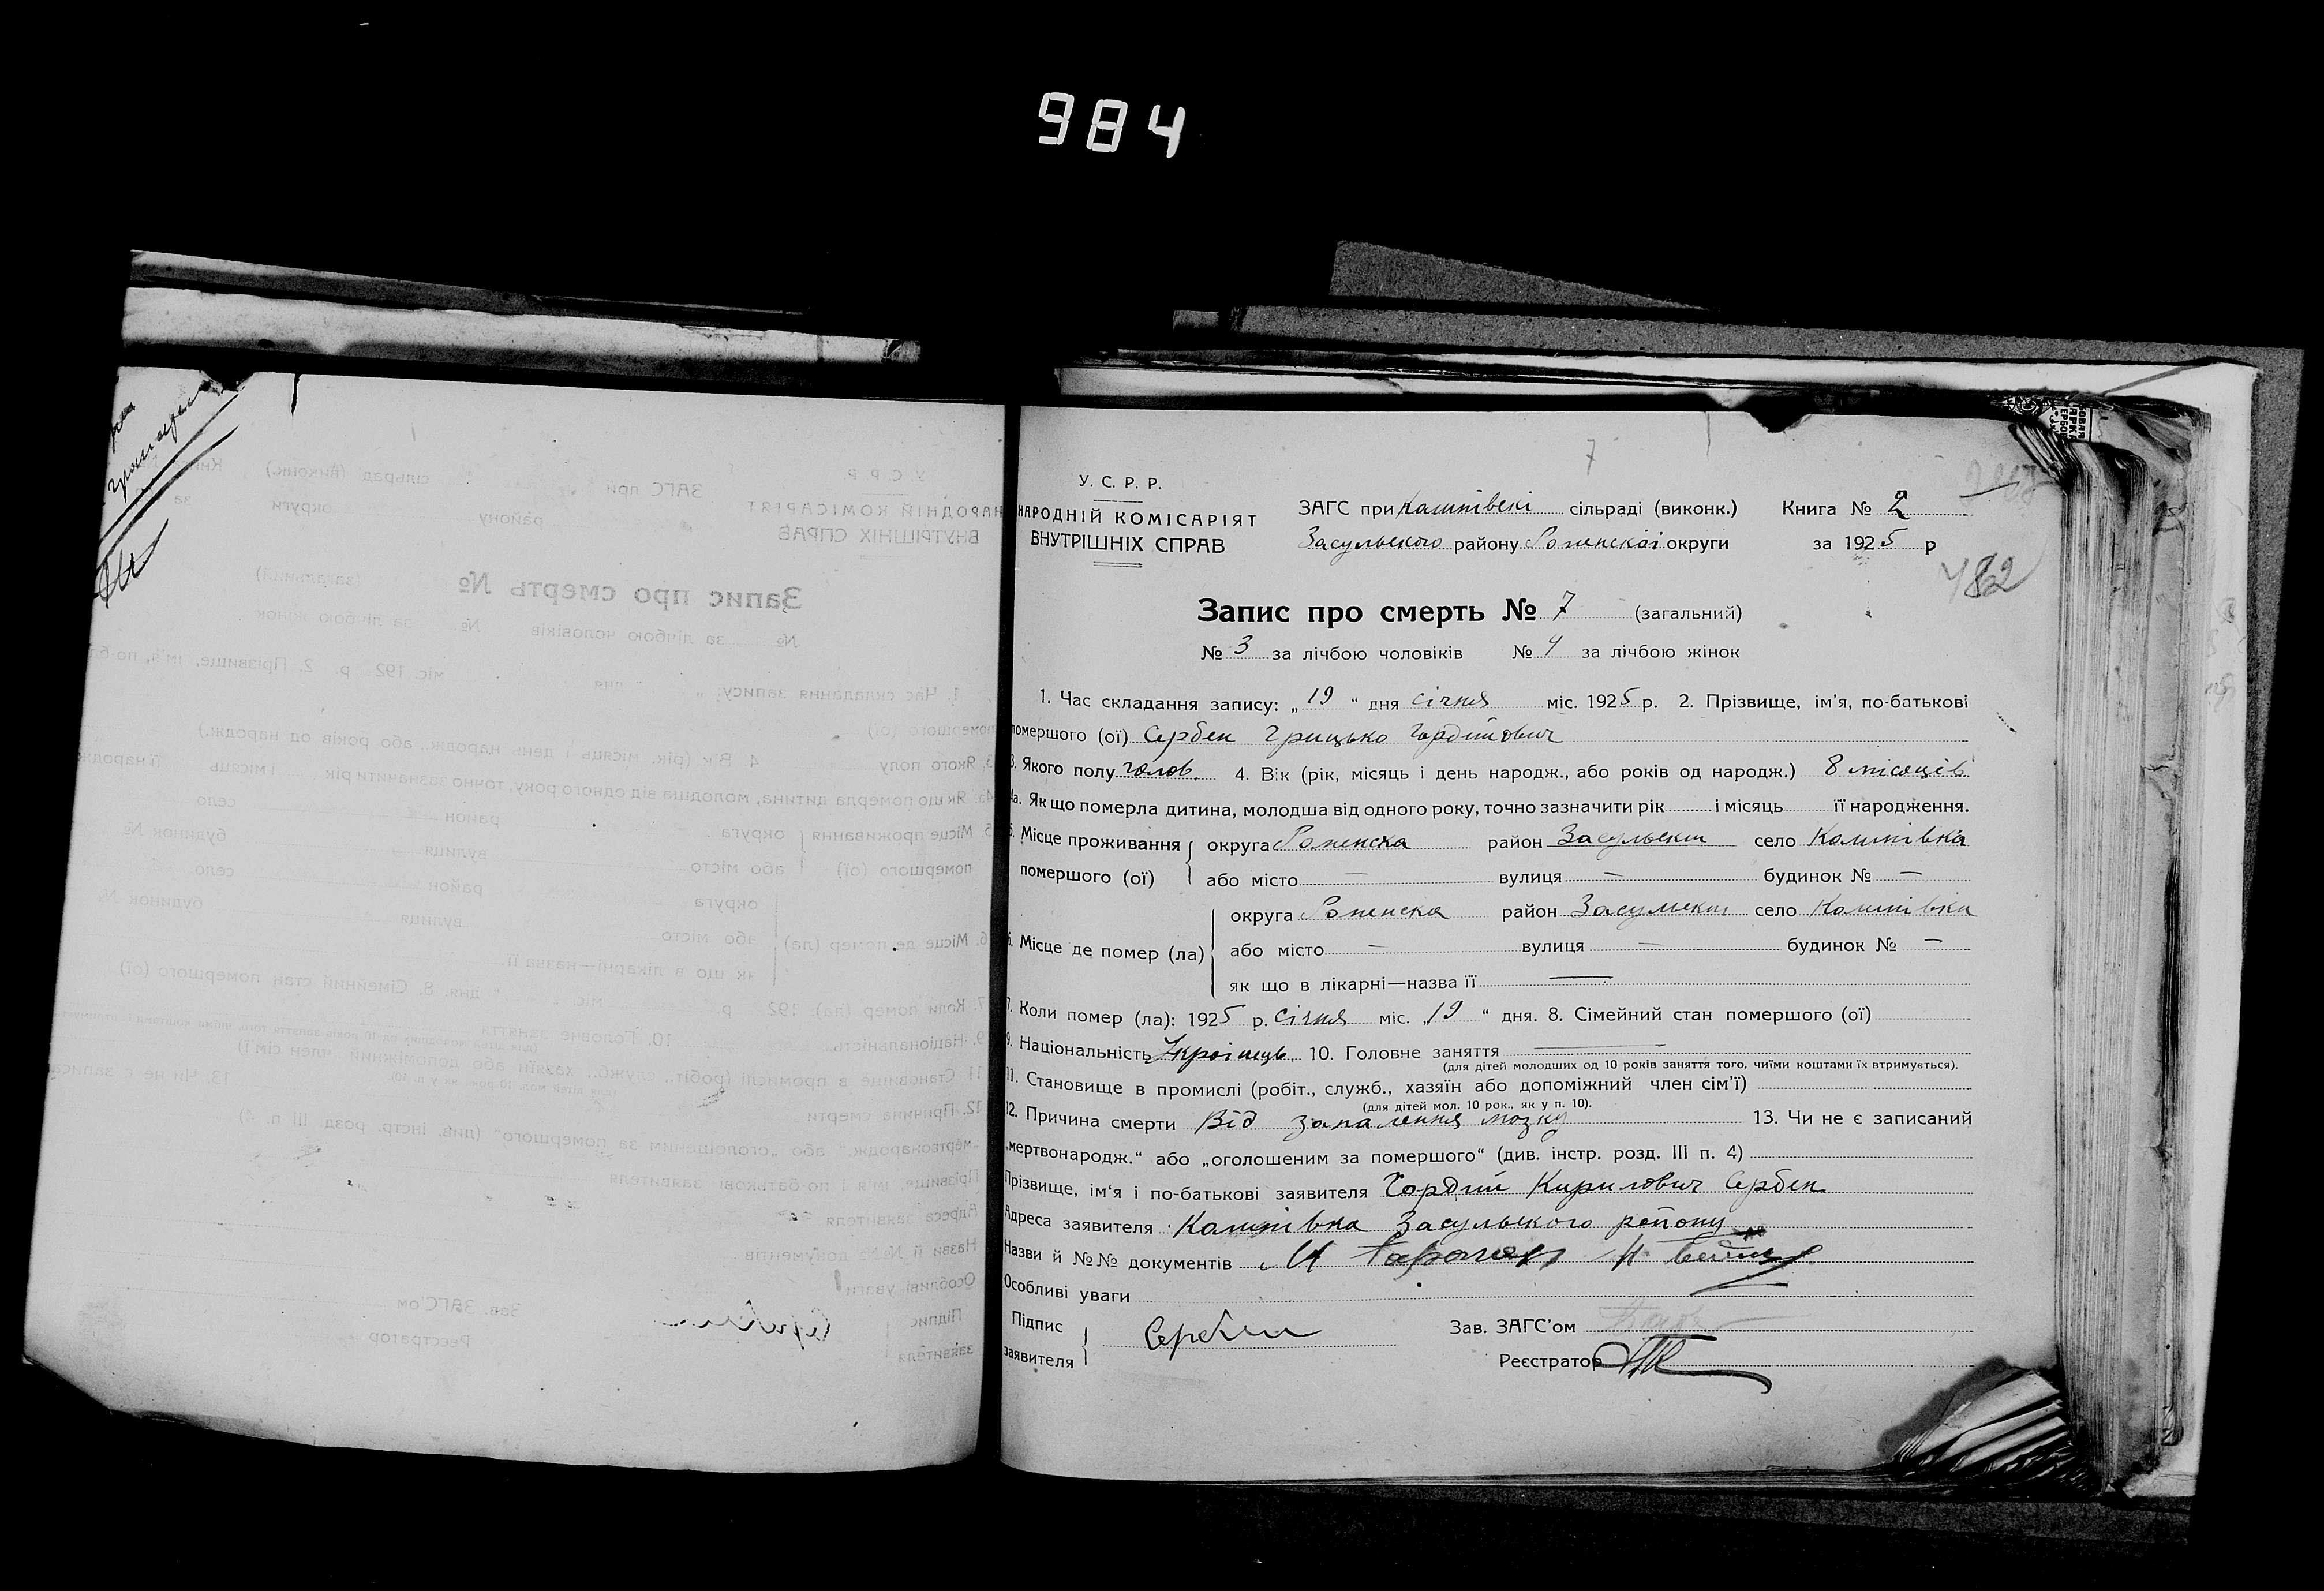 984
7
У. С. Р. Р.
НАРОДНІЙ КОМІСАРІЯТ
ВНУТРІШНІХ СПРАВ
ЗАГС при сільраді (виконк.) Книга № 2
Засульского району Роменскоі округи за 1925 р
482
Запис про смерть № 7 (загальний)
№ 3 за лічбою чоловіків № 4 за лічбою жінок
1. Час складання запису: „19“ дня січня міс. 1925 р. 2. Прізвище, ім’я, по-батькові
помершого (ої) Сербен Грицько Гордійович
3. Якого полу чолов. 4. Вік (рік, місяць і день народж., або років од народж.) 8 місяців
4а. Якщо померла дитина, молодша від одного року, точно зазначити рік і місяць її народження.
5. Місце проживання помершого (ої) округа Роменска район Засульский село
або місто — вулиця — будинок № —
6. Місце де помер (ла) округа Роменска район Засульский село
або місто — вулиця — будинок № —
як що в лікарні—назва її —
7. Коли помер (ла): 1925 р. січня міс. „19“ дня. 8. Сімейний стан помершого (ої)
9. Національність Українець 10. Головне заняття —
(для дітей молодших од 10 років заняття того, чиїми коштами їх втримується).
11. Становище в промислі (робіт., служб., хазяїн або допоміжний член сім’ї)
(для дітей мол. 10 рок., як у п. 10).
12. Причина смерти Від запалення мозку 13. Чи не є записаний
„мертвонародж.“ або „оголошеним за помершого“ (див. інстр. розд. III п. 4)
Прізвище, ім‘я і по-батькові заявителя Гордій Кирилович Сербен
Адреса заявителя Засульского району
Назви й №№ документів
Особливі уваги
Підпис заявителя Сербен
Зав. ЗАГС’ом
Реєстратор